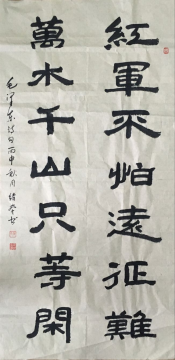 紅軍不怕遠征難
萬水千山只等閑
毛澤東詩句丙申秋月